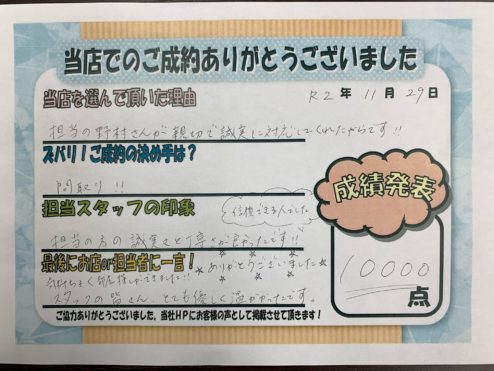 当店でのご成約ありがとうございました
当店を選んで頂いた理由
R2年11月29日
担当の野村さんが親切で誠実に対応してくれたからです!!
ズバリ!ご成約の決め手は?
間取り!!
担当スタッフの印象
信頼できる人でした
担当の方の誠実さと丁寧さが良かったです!!
成績発表
10000点
最後にお店or担当者に一言!
ありがとうございました
気持ちよく
スタッフの皆さん、とても優しく温かかったです。
ご協力ありがとうございました。当社HPにお客様の声として掲載させて頂きます!